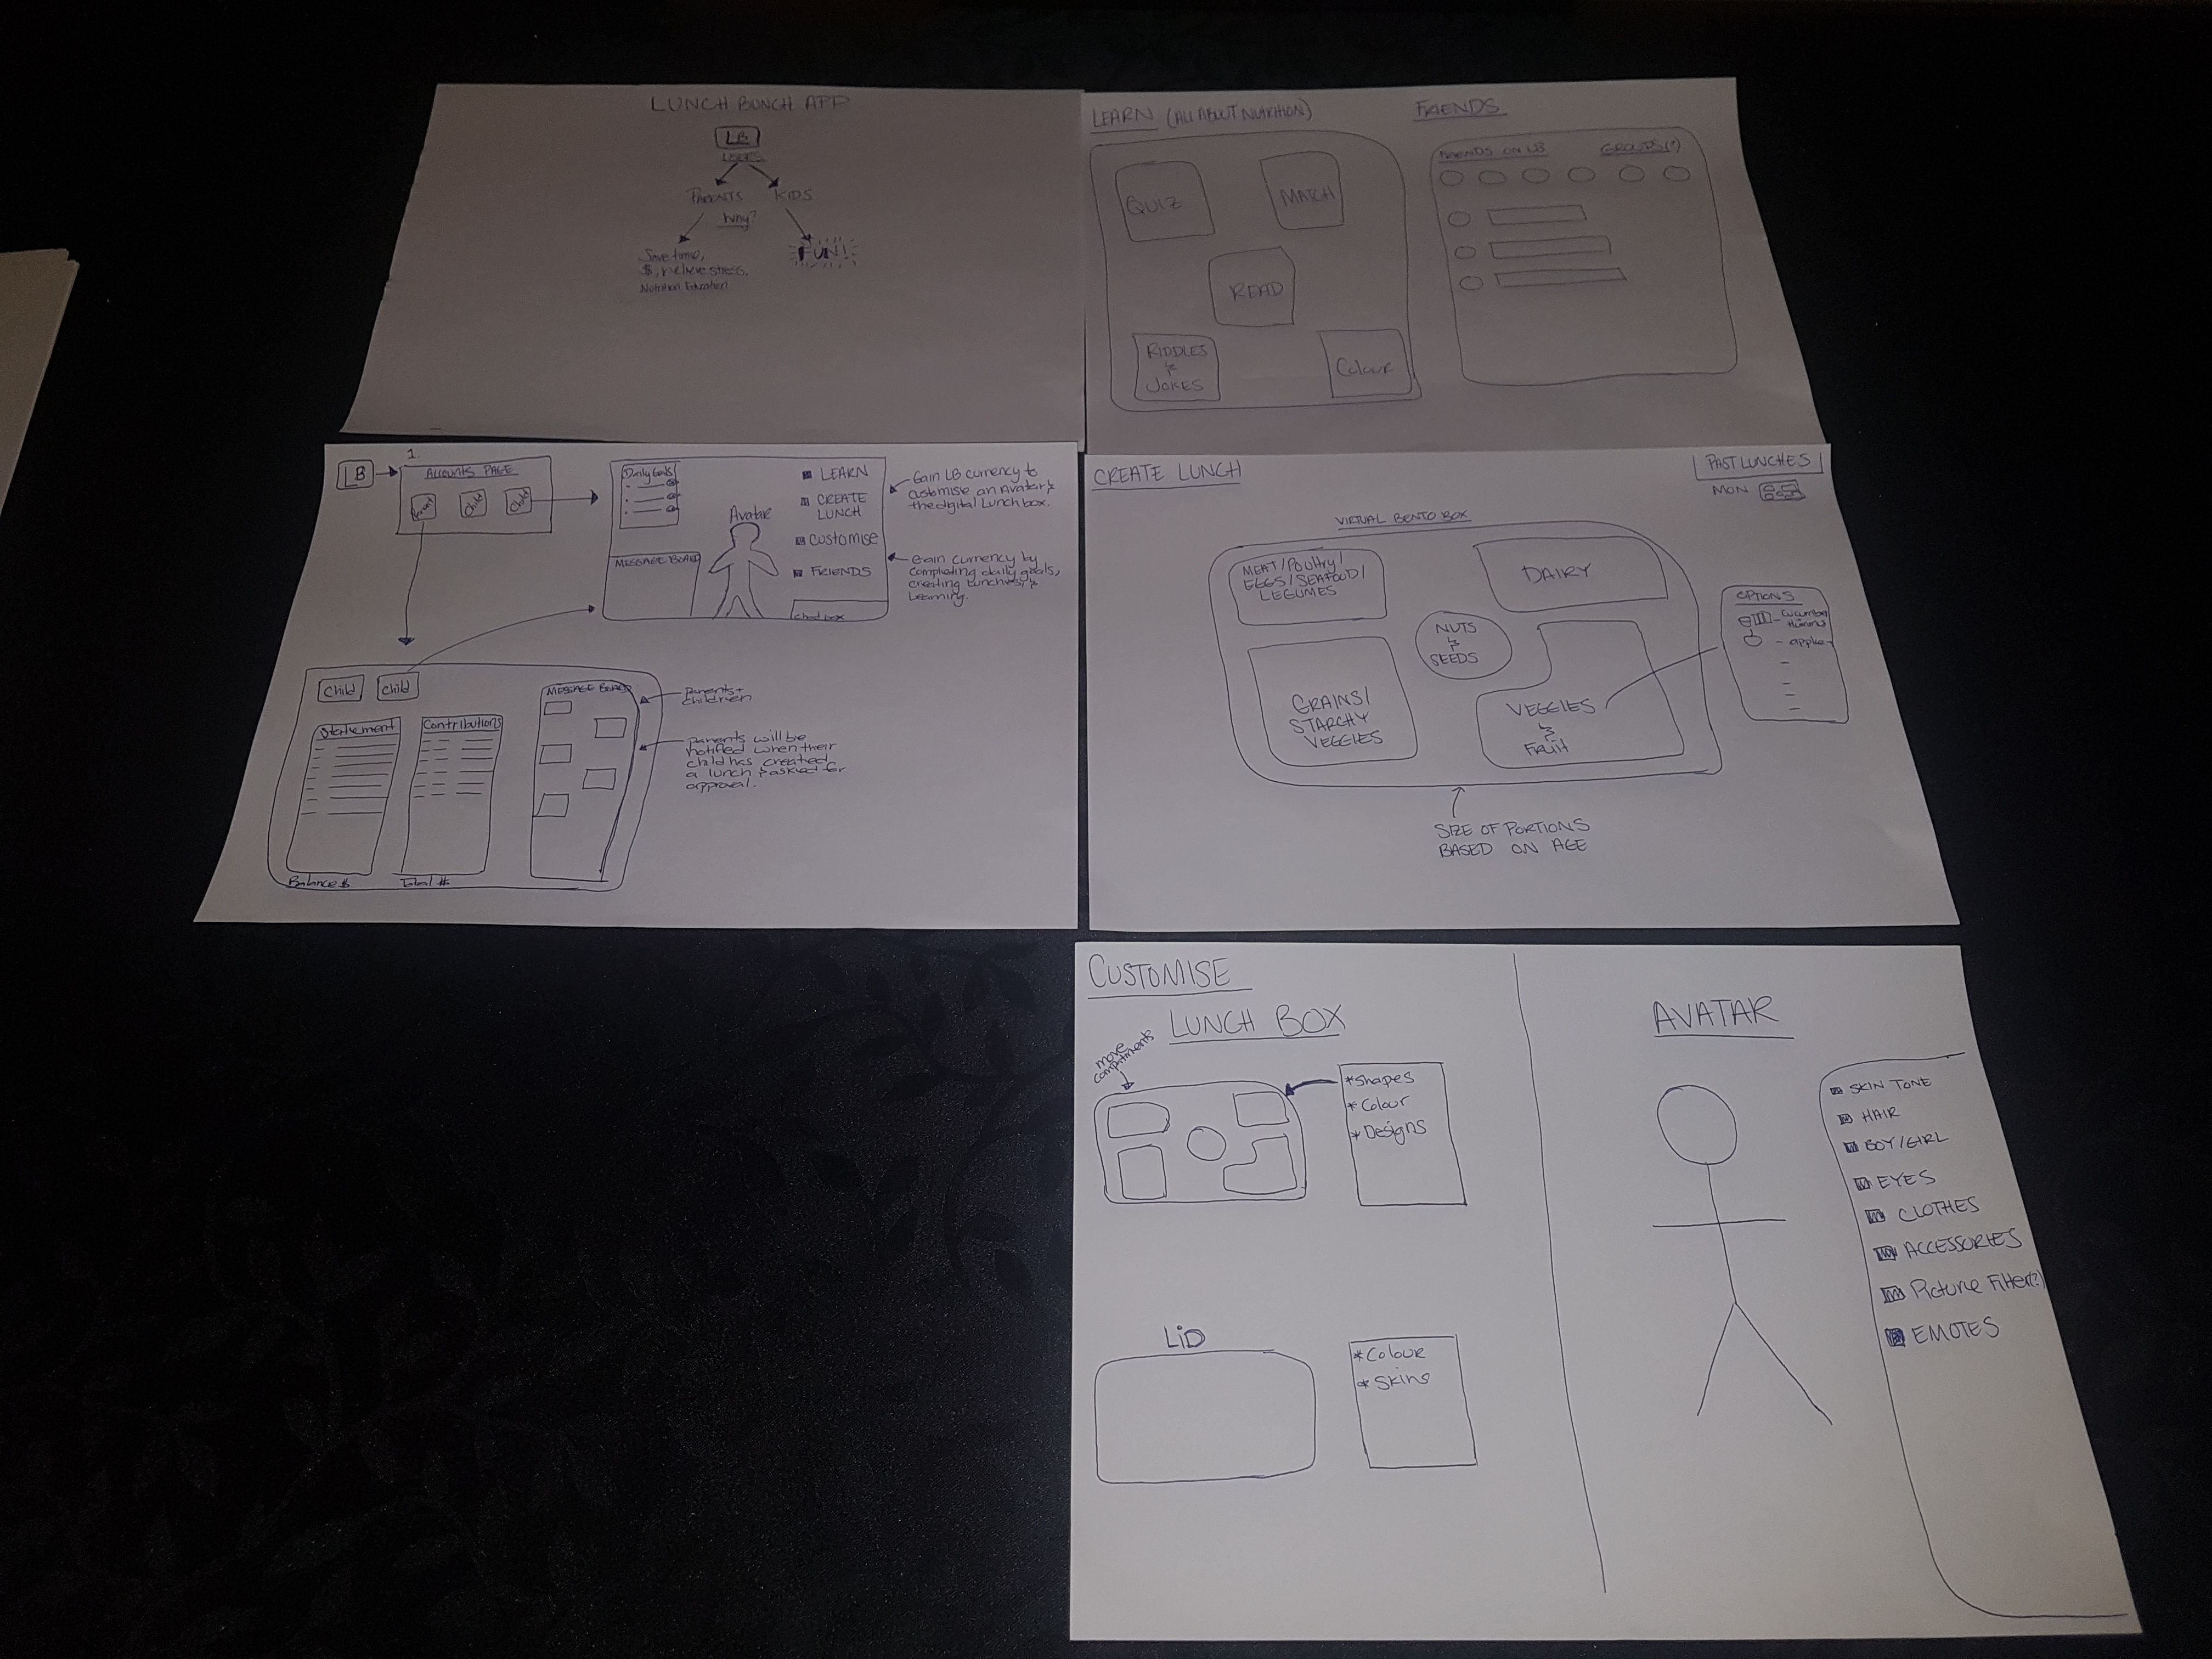 LUNCH BUNCH APP
LB
USERS
PARENTS
KIDS
Why?
Save time,
$, relieve stress.
Nutrition Education
FUN!
LEARN (ALL ABOUT NUTRITION)
QUIZ
MATCH
READ
RIDDLES
&
JOKES
Colour
FRIENDS
FRIENDS ON LB
GROUPS(?)
LB
1.
ACCOUNTS PAGE
Parent
Child
Child
Daily Goals
MESSAGE BOARD
Avatar
LEARN
CREATE
LUNCH
CUSTOMISE
FRIENDS
Chat box
Gain LB currency to
customise an Avatar &
the digital Lunch box.
Gain currency by
completing daily goals,
creating lunches &
Learning.
Child
Child
Statement
Contributions
MESSAGE BOARD
Balance $
Total #
parents +
children
parents will be
notified when their
child has created
a lunch & asked for
approval.
CREATE LUNCH
PAST LUNCHES
MON
VIRTUAL BENTO BOX
MEAT/Poultry/
EGGS/SEAFOOD/
LEGUMES
DAIRY
NUTS
&
SEEDS
GRAINS/
STARCHY
VEGGIES
VEGGIES
&
Fruit
OPTIONS
- cucumber
Hummus
- apple
SIZE OF PORTIONS
BASED ON AGE
CUSTOMISE
LUNCH BOX
move
compartments
* Shapes
* Colour
* Designs
LiD
* Colour
* Skins
AVATAR
SKIN TONE
HAIR
BOY/GIRL
EYES
CLOTHES
ACCESSORIES
Picture Filter(?)
EMOTES